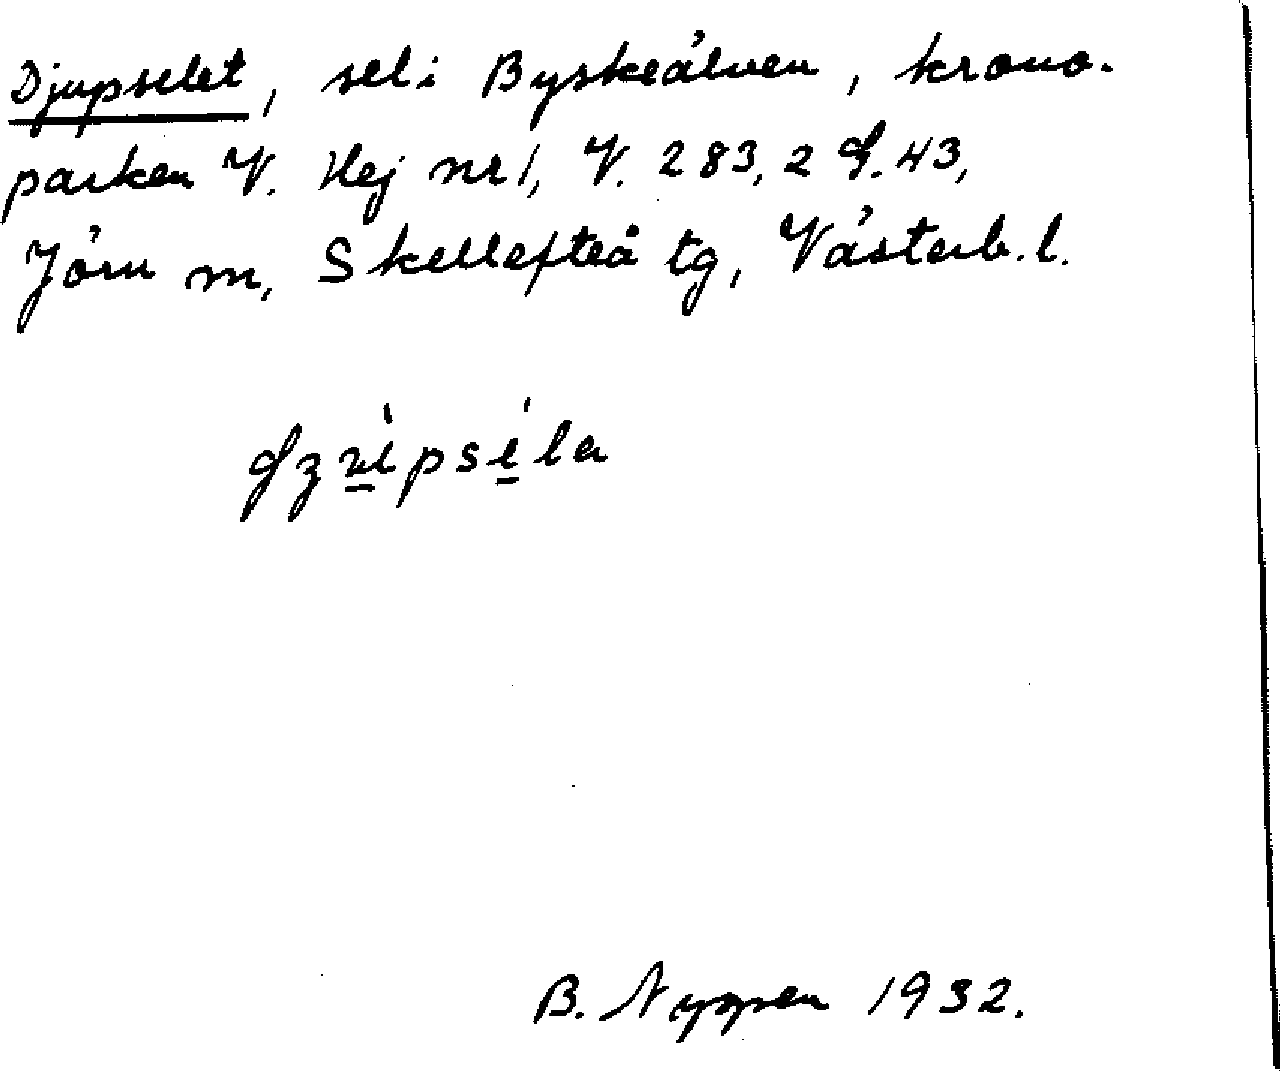 Djupselet, sel i Byskeälven, krono-
parken V. Hej nr 1, V. 283, 2 d. 43,
Jörn sn, Skellefteå tg, Västerb. l.
B. 1932.